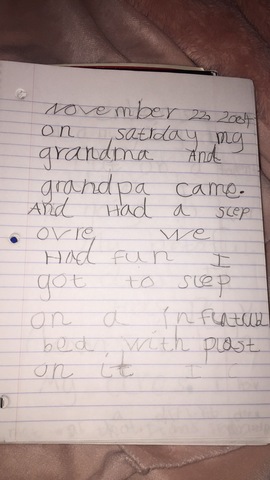 November 23 2004
on satrday my
grandma And
grandpa came.
And Had a slep
ovre we
Had fun I
got to slep
on a
bed with
on it I